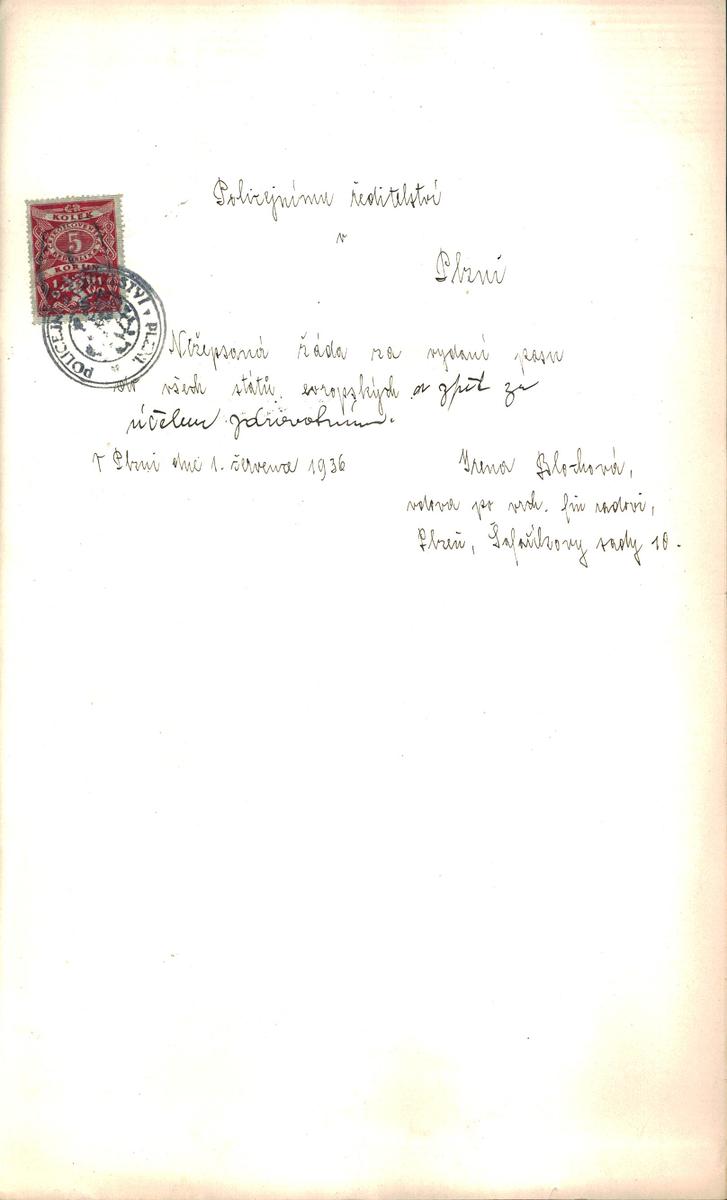 Policejnímu ředitelství
v
Plzni
KOLEK
5
KORUN
POLICEJNÍ ŘEDITELSTVÍ V PLZNI
Nížepsaná žáda za vydaní pasu
do všech států evropských a zpět za
účelem zdravotním.
V Plzni dne 1. července 1936
Irena Blochová,
vdova po vrch. fin radovi,
Plzeň, Šafaříkovy sady 10.